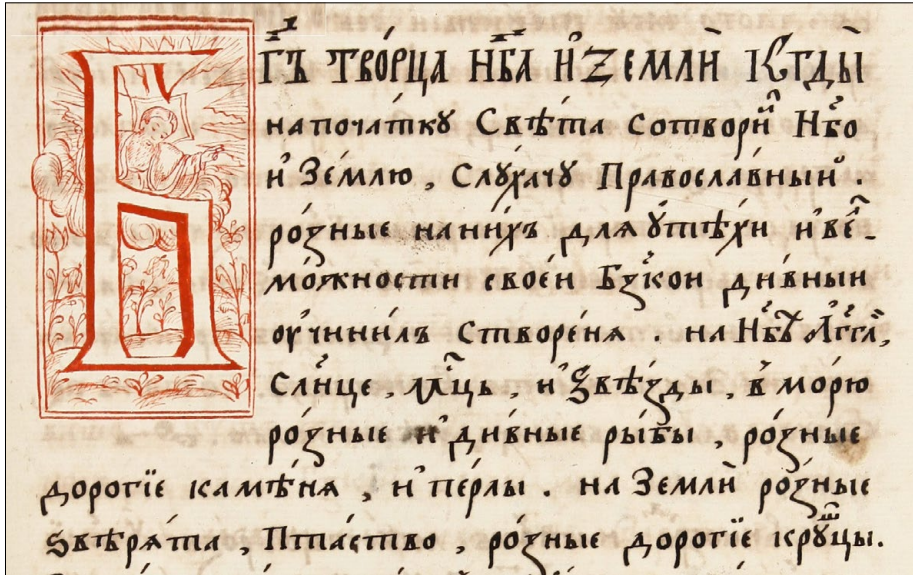 БГЪ ТВО́РЦА НБ҃А И҆ ЗЕМЛѝ КГДЫ̀
напоча́тку Свѣ́та сотвори́л Нб҃о
и҆ Зе́млю, Слꙋ́хачꙋ Правосла́вный.
ро́зные на ни́хъ для ᲂу҆тѣ́хи и҆ ве́л-
мо́жности своеи Бз҃кои ди́вныи
ᲂучини́лъ створе́ня. на Нб҃ꙋ А҆́гг҃ли,
Сл҃нце, мс҃ць, и҆ Ѕвѣ́зды, в̾ мо́рю
ро́зные и҆ ди́вные ры̑бы, ро́зные
дорогі́е камѣ́ня, и҆ пе́рлы. на Землѝ ро́зные
ѕвѣря́та, Пта́ство, ро́зные дорогі́е крꙋшцы.